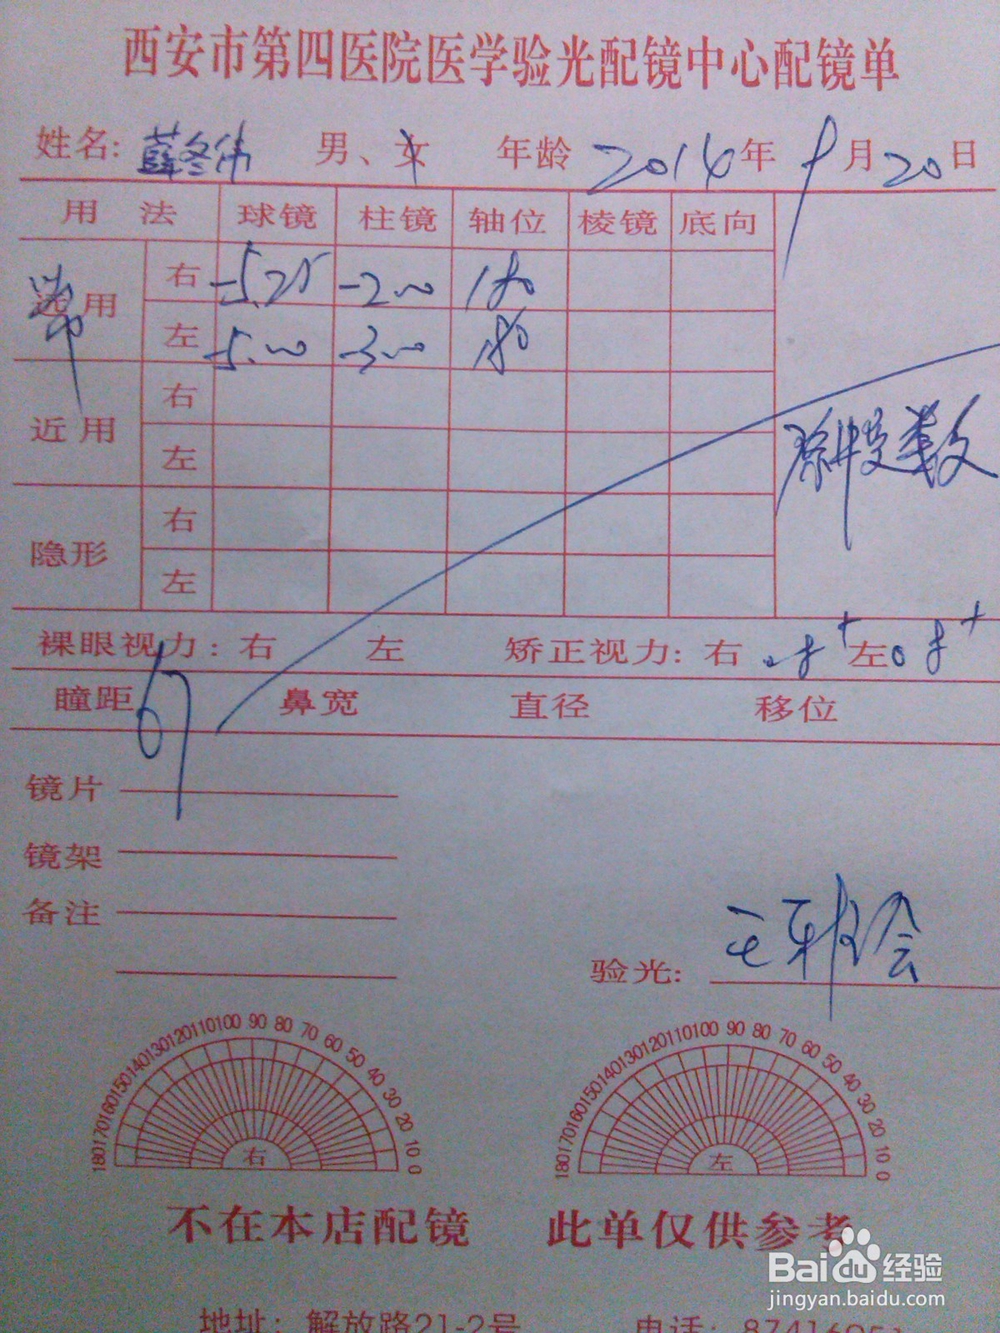 西安市第四医院医学验光配镜中心配镜单
姓名: 薛冬伟 男、女 年龄 2014年9月20日
用法 球镜 柱镜 轴位 棱镜 底向
远用 右 -5.25 -2.00 180
常
左 -5.00 -3.00 180
近用 右
左
隐形 右
左
裸眼视力: 右 左 矫正视力: 右 .8+ 左 0.8+
瞳距 67 鼻宽 直径 移位
镜片
镜架
备注
验光:
180 170 160 150 140 130 120 110 100 90 80 70 60 50 40 30 20 10 0
右
180 170 160 150 140 130 120 110 100 90 80 70 60 50 40 30 20 10 0
左
不在本店配镜 此单仅供参考
Baidu经验
jingyan.baidu.com
地址: 解放路21-2号 电话: 87416951